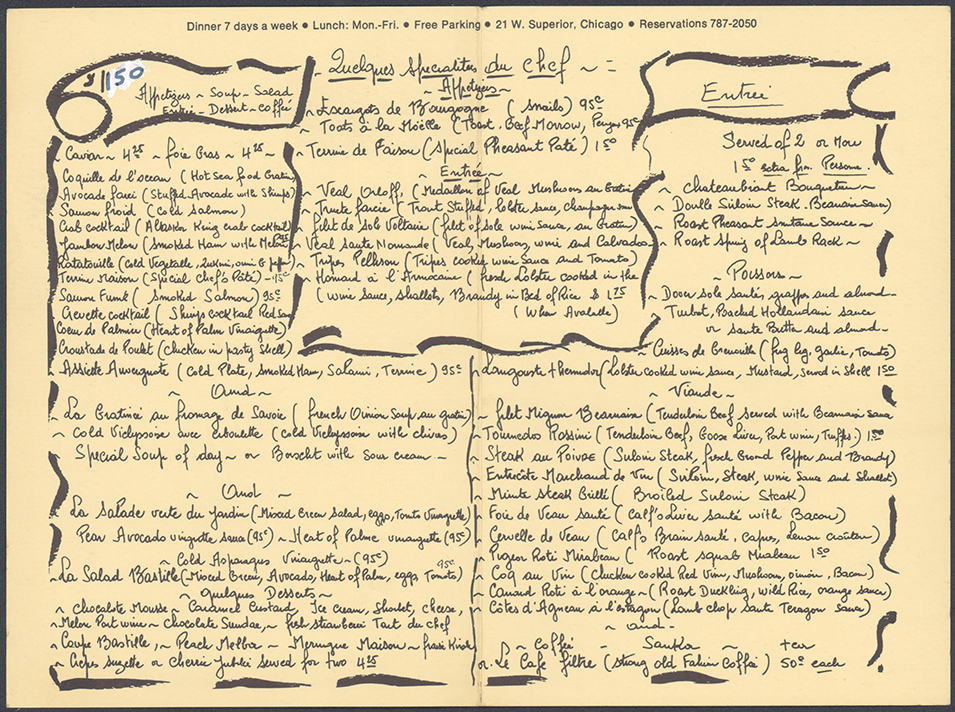 Dinner 7 days a week ● Lunch: Mon.-Fri. ● Free Parking ● 21 W. Superior, Chicago ● Reservations 787-2050
$1150
Appetizers ~ Soup ~ Salad
Entreé - Dessert - Coffeé
Caviar ~ 4.25 ~ foie Gras ~ 4.25 ~
Coquille de l'ocean (Hot Sea food Gratin)
Avocado farci (Stuffed Avocado with Shrimps)
Saumon froid (Cold Salmon)
Crab cocktail (Alaskan King crab cocktail)
Jambon Melon (Smoked Ham with Melon) 95c
Ratatouille (Cold Vegetable, Zukini,
Terrine Maison (Special chef's Pâté)
Saumon Fumé (Smoked Salmon) 95c
Crevette cocktail (Shrimp cocktail Red Sauce
Coeur de Palmier (Heart of Palm Vinaigrette)
Croustade de Poulet (Chicken in pastry Shell)
Assiette Auvergnate (Cold Plate, Smoked Ham, Salami, Terrine) 95c
~ And ~
La Gratineé au fromage de Savoie (french Onion Soup, au gratin)
~ Cold Vichyssoise avec ciboulette (Cold Vichyssoise with chives)
Special Soup of day ~ or Borscht with sour cream ~
~ And ~
La salade verte du Jardin (Mixed Green Salad, eggs, Tomato Vinaigrette)
Pear Avocado vinigrette sauce (95c) ~ Heart of Palme vinaigrette (95c)
~ Cold Aspargus Vinaigrette ~ (95c)
~ La Salad Bastille (Mixed Green, Avocado, Heart of Palm, eggs Tomato) 95c
~ quelques Desserts ~
~ chocolate Mousse ~ Caramel Custard, Ice cream, Sherbet, cheese,
~ Melon Port wine ~ Chocolate Sundae, ~ fresh strawberri Tart du Chef
~ Coupe Bastille, ~ Peach Melba ~ Meringue Maison ~ fraise Kirsch
~ Crêpes Suzette or Cherrie Jubilee served for two 4.25
~ Quelques Specialites du Chef ~
~ Appetizers ~
~ Escargots de Bourgogne (Snails) 95c
~ Toasts à la Moëlle (Toast. Beef Marrow, 95c
~ Terrine de Faisan (Special Pheasant Paté) 1.50
~ Entreé ~
~ Veal Orloff, (Medaillon of Veal Mushrooms au Gratin
~ Truite farcie (Trout Stuffed, lobster sauce, champagne
~ filet de Sole Voltaire (filet of sole wine Sauce, au Gratin)
~ Veal Sauté Normande (Veal, Mushrooms, wine and Calvados
~ Tripes (Tripes cooked wine Sauce and Tomato)
~ Homard à l'Americaine (fresh Lobster cooked in the
(wine sauce, shallots, Brandy in Bed of Rice $ 1.75
(When Available)
Entreé
Served of 2 or More
1.50 extra for Persone.
~ Chateaubriant
~ Double Sirloin Steak. Bearnaise Sauce)
~ Roast Pheasant Sauce ~
~ Roast Spring of Lamb Rack ~
~ Poissons ~
~ Dover sole sautés, grapes and almond ~
Turbot, Poached Hollandaise sauce
or sauté Butter and almond ~
~ Cuisses de Grenouille (frog leg, garlic, Tomato)
~ Langouste thermidor (Lobster cooked wine sauce, Mustard, served in Shell 1.50
~ Viande ~
~ filet Mignon Bearnaise (Tenderloin Beef served with Bearnaise Sauce
~ Tournedo Rossini (Tenderloin Beef, Goose Liver, Port wine, Truffes.) 1.50
~ Steak au Poivre (Sirloin Steak, fresh Grond Pepper and Brandy)
~ Entrecôte Marchand de Vin (Sirloin, Steak, wine Sauce and Shallot)
~ Minute Steak Grillé (Broiled Sirloin Steak)
~ Foie de Veau Sauté (Calf's Liver sauté with Bacon)
~ Cervelle de Veau (Calf's Brain sauté. capers, Lemon crouton)
~ Pigeon Roti Mirabeau (Roast squab Mirabeau 1.50
~ Coq au Vin (Chicken cooked Red Vine, Mushroom, oinion, Bacon)
~ Canard Roti à l'orange ~ (Roast Duckling, wild Rice, orange sauce)
~ Côtes d'Agneau à l'estragon (Lamb chop sauté Taragon Sauce)
~ and ~
~ Coffeé - Sanka ~ tea
or Le Café filtre (strong old Coffeé) 50c each